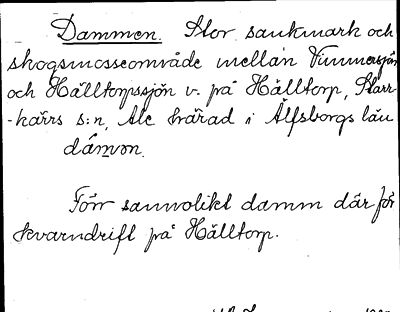 Dammen. Stor sankmark och
skogsmosseområde mellan Vimmersjön
och Hälltorpssjön v. på Hälltorp, Starr-
-kärrs s:n, Ale härad i Älfsborgs län
dámon.
Förr sannolikt damm där för
kvarndrift på Hälltorp.